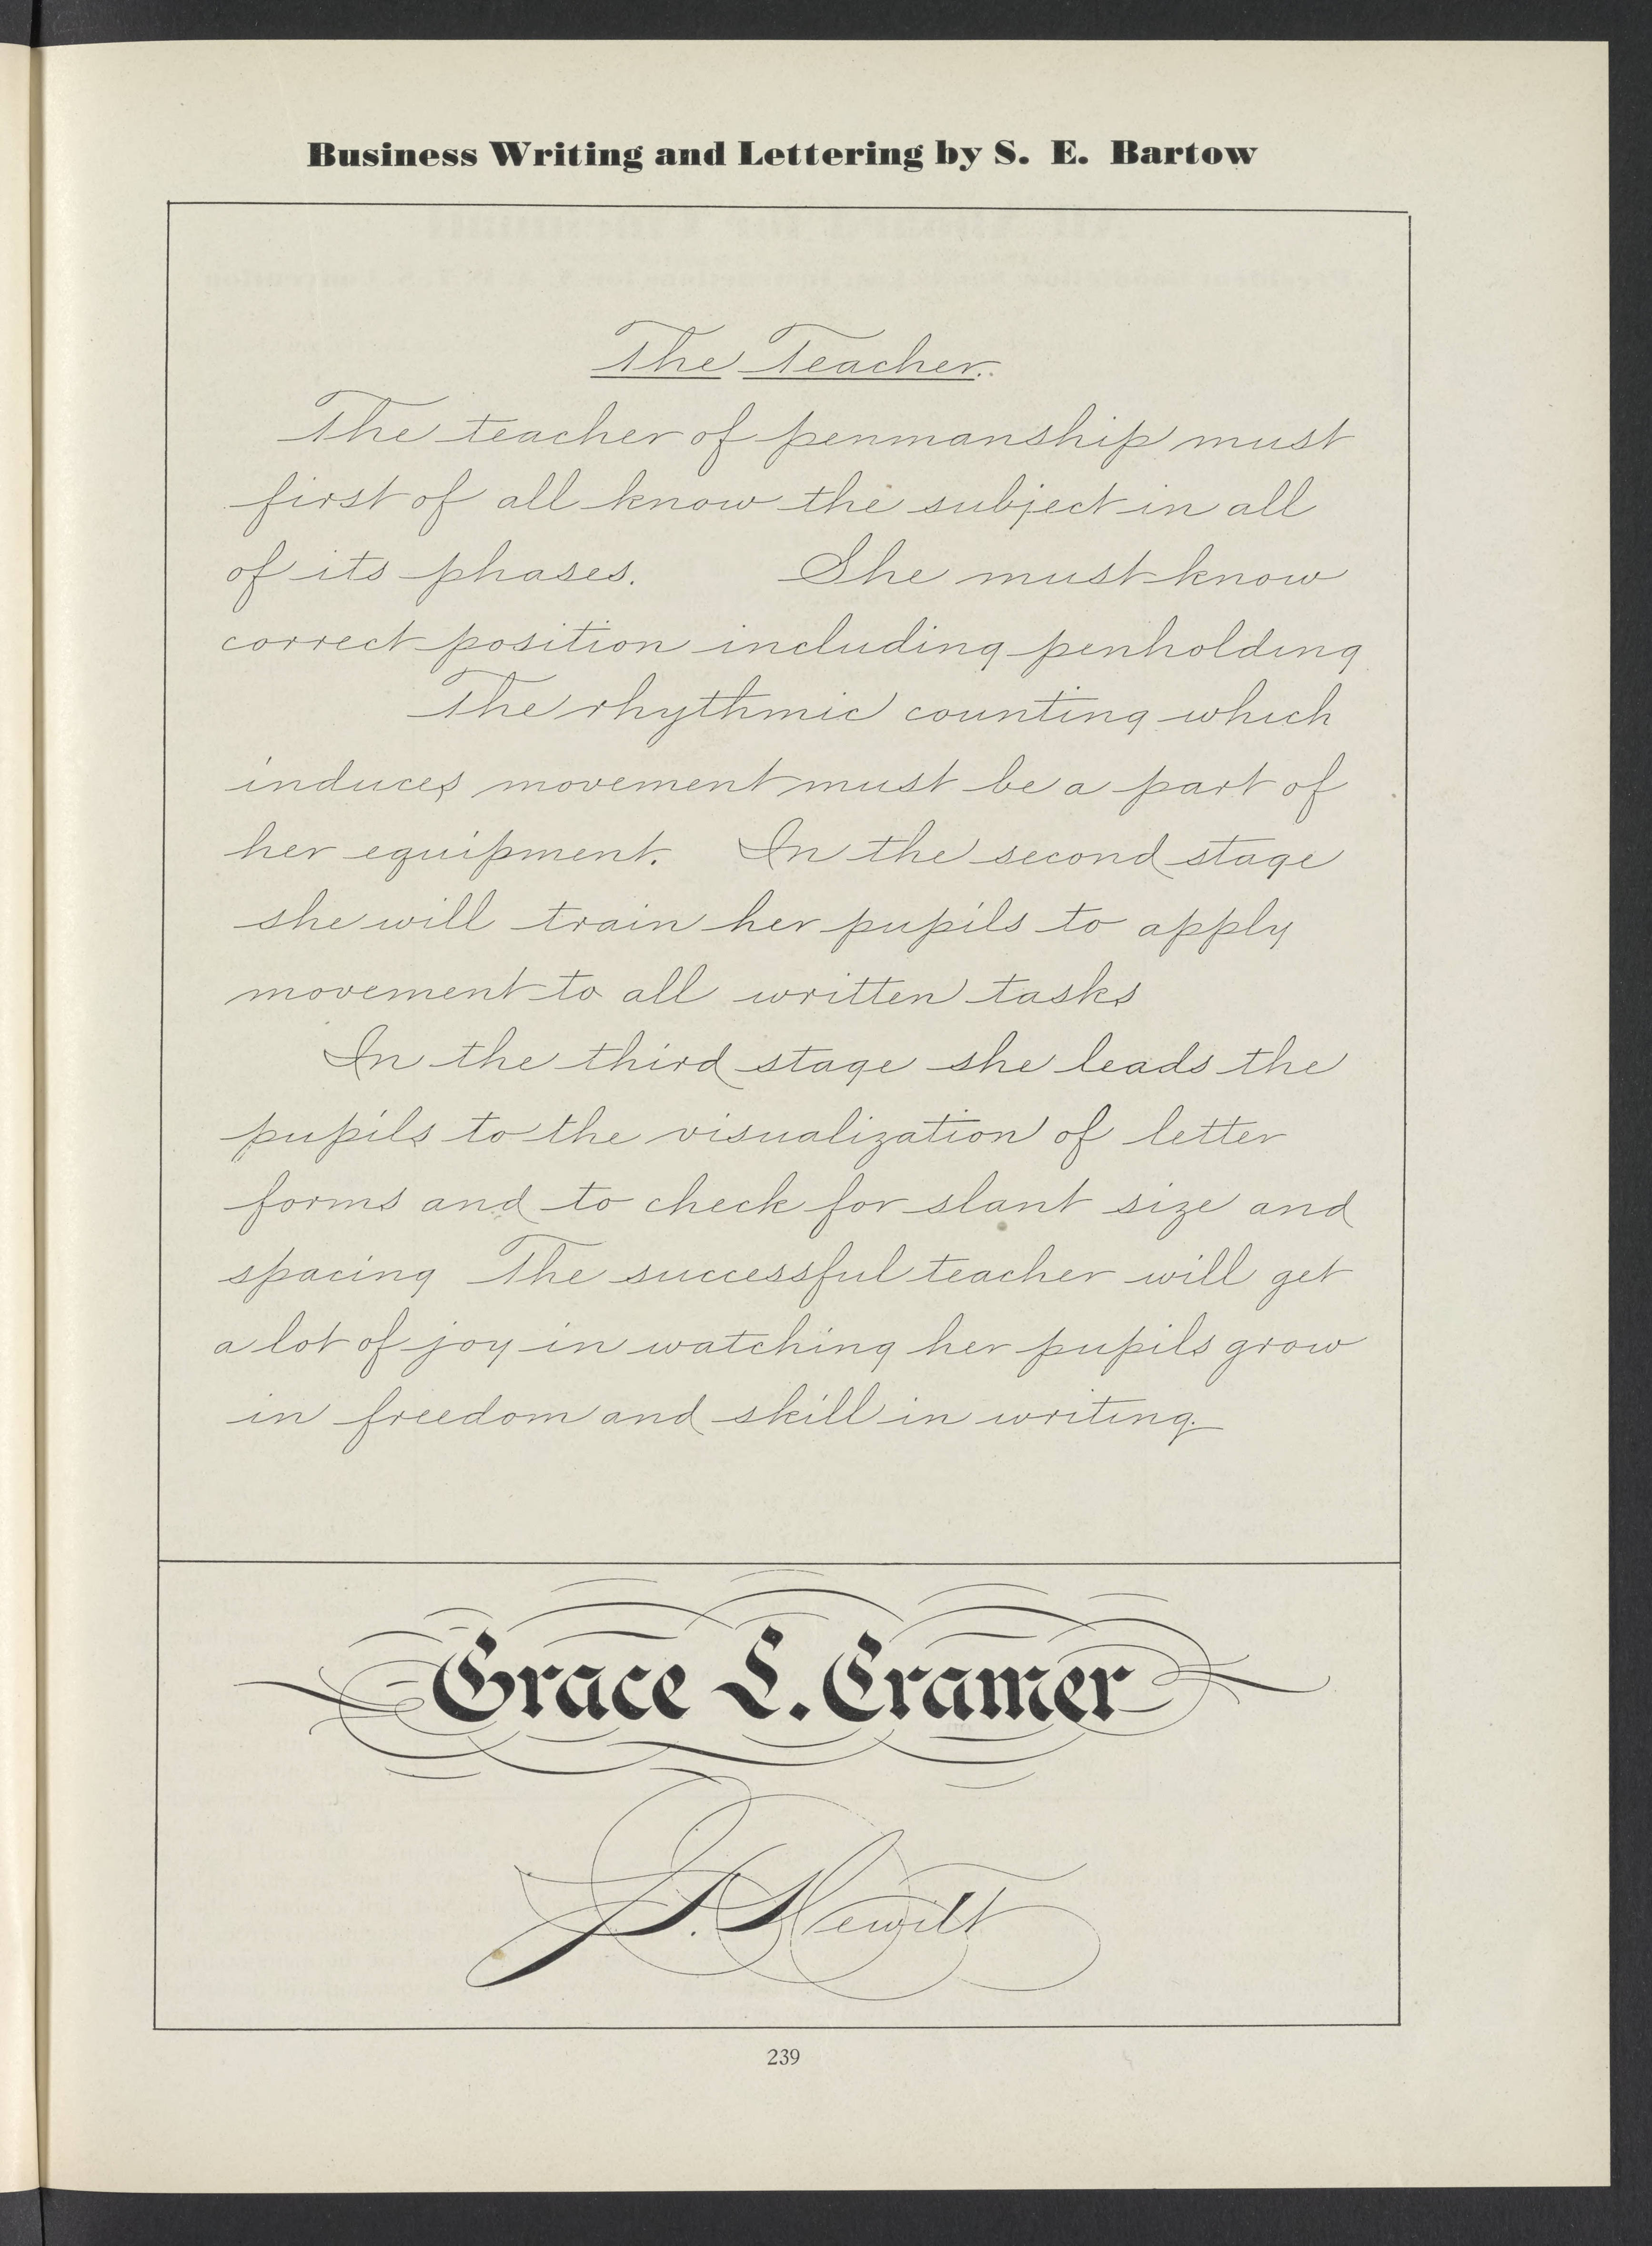 Business Writing and Lettering by S. E. Bartow
The Teacher.
The teacher of penmanship must
first of all know the subject in all
of its phases. She must know
correct position including penholding
The rhythmic counting which
induces movement must be a part of
her equipment. In the second stage
she will train her pupils to apply
movement to all written tasks
In the third stage she leads the
pupils to the visualization of letter
forms and to check for slant size and
spacing The successful teacher will get
a lot of joy in watching her pupils grow
in freedom and skill in writing.
Grace L. Cramer
Hewitt
239